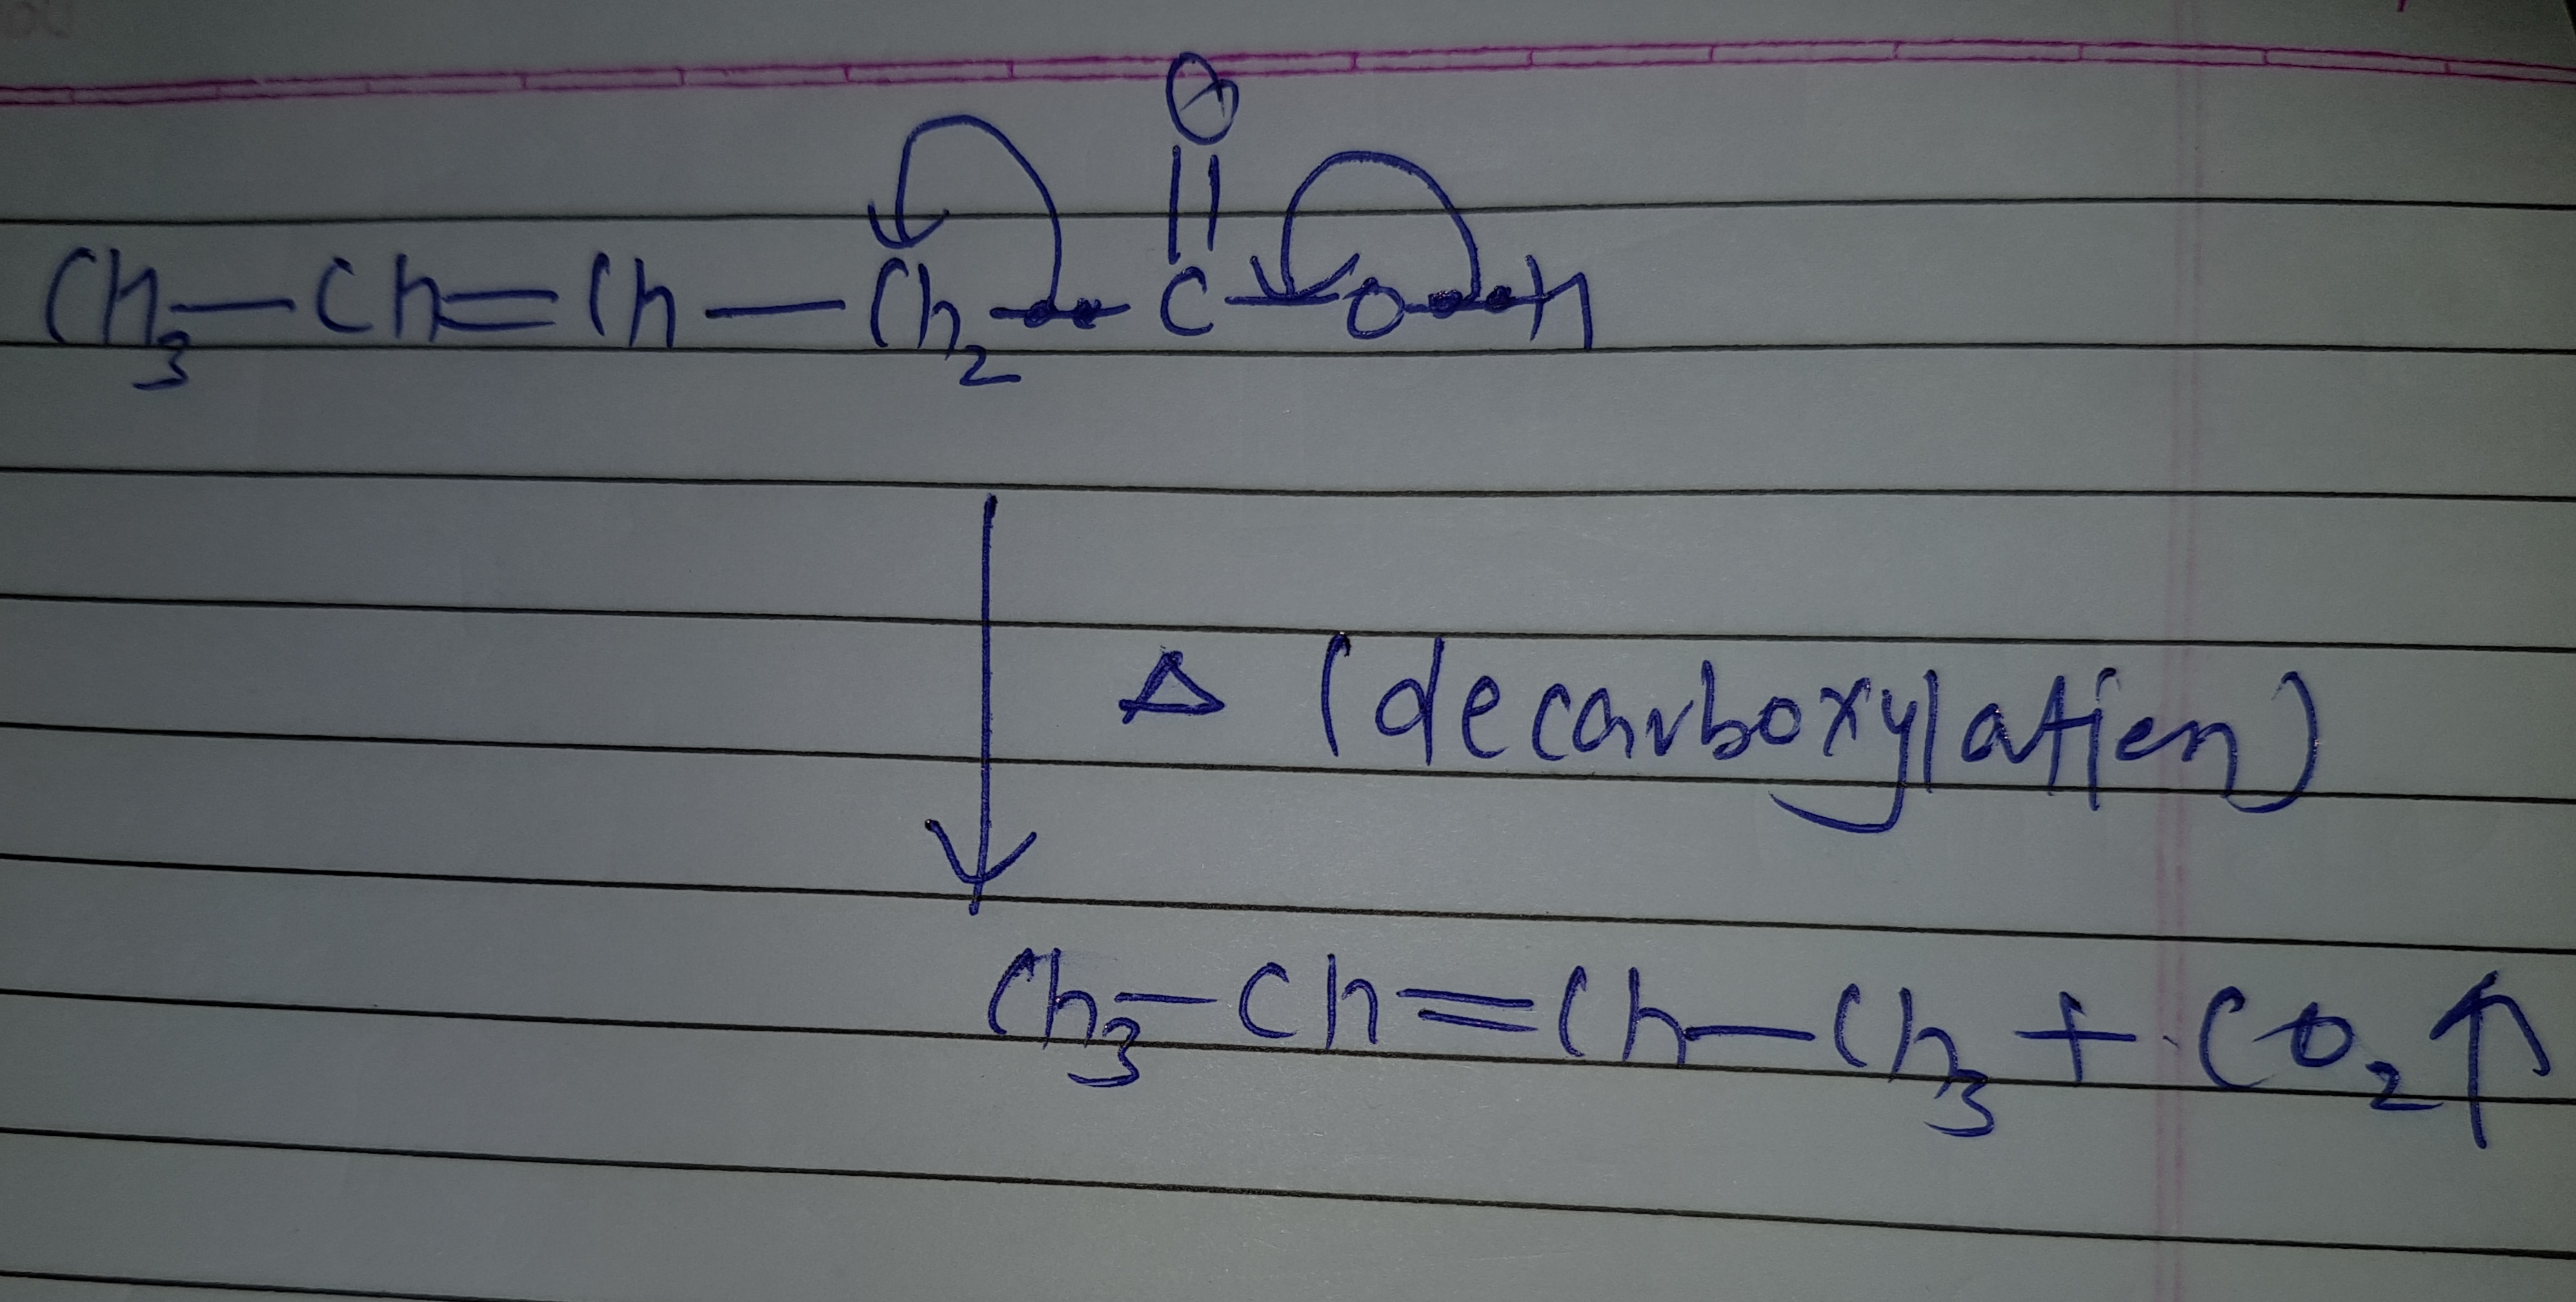 O
||
CH₃—Ch=Ch—Ch₂—C—O—H
Δ (decarboxylation)
Ch₃—Ch=Ch—Ch₃ + CO₂↑